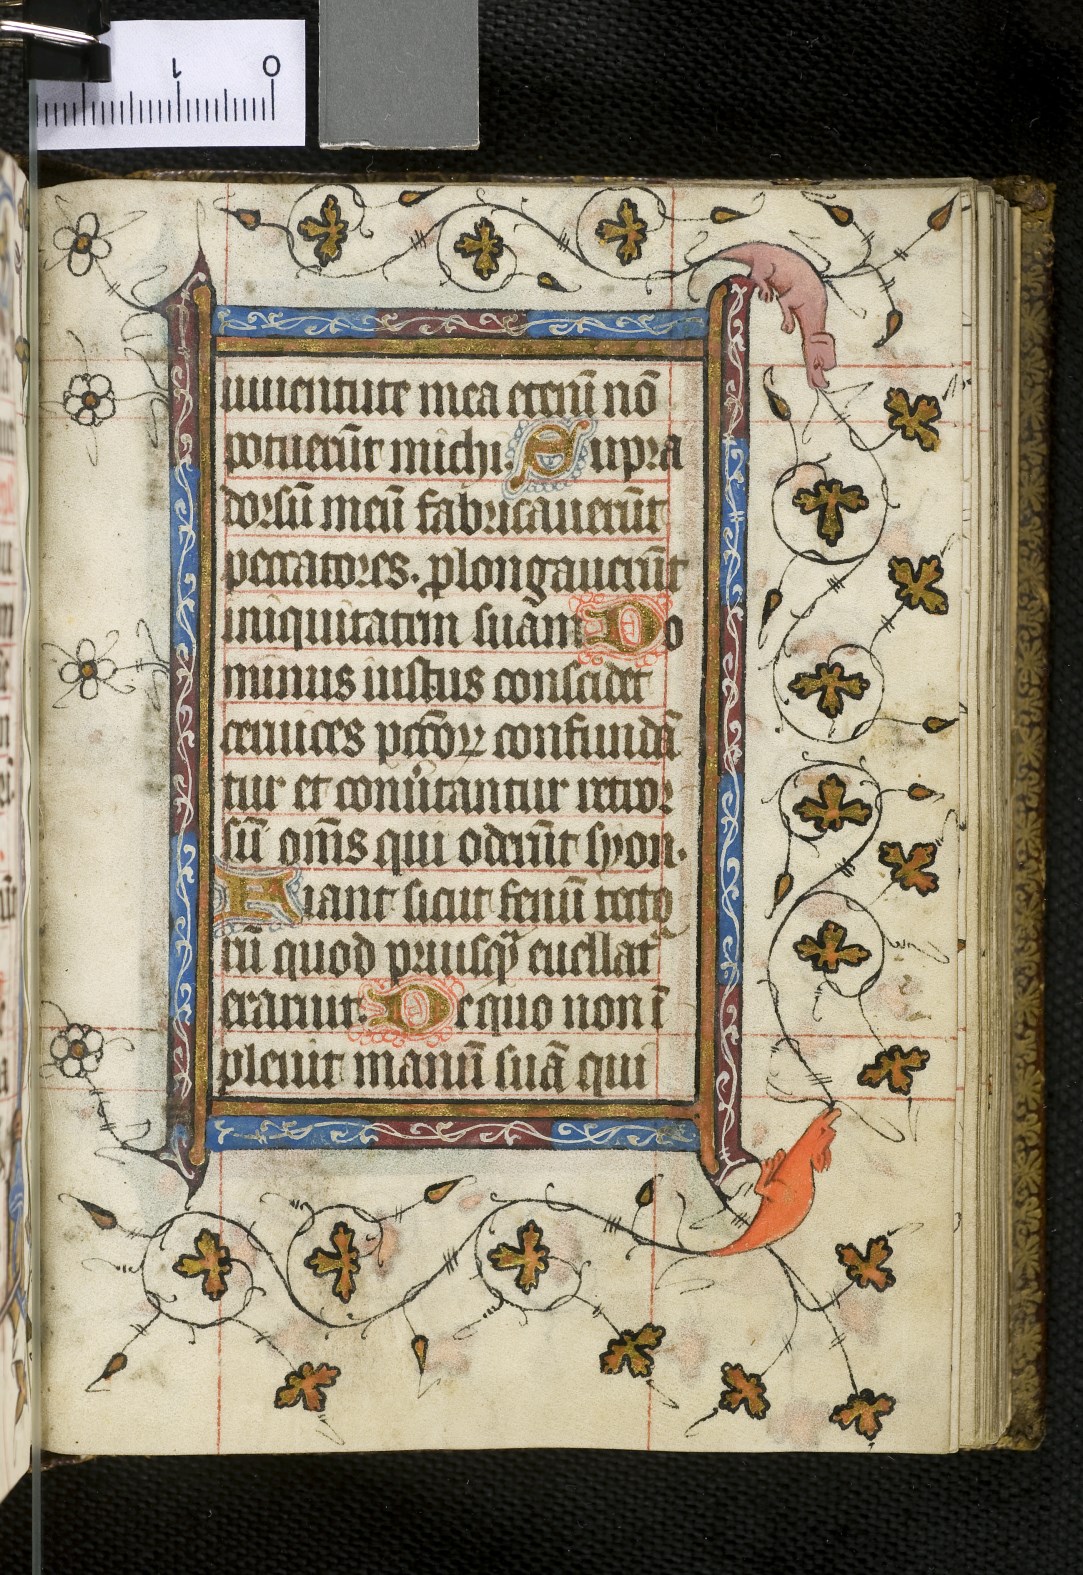 0
1
iuuentute mea eteni̅ no̅
potueru̅t michi. Supra
dorsu̅ meu̅ fabricaueru̅t
peccatores. ꝓlongaueru̅t
iniquitatem suam Do
minus iustus conscidet
ceruices pcco̅ꝝ confunda̅
tur et conu̅tantur retror
su̅ om̅s qui oderu̅t syon.
Fiant sicut fenu̅ tecto
ru̅ quod priusq̅ euellat᷑
exaruit. De quo non i̅
pleuit manu̅ sua̅ qui